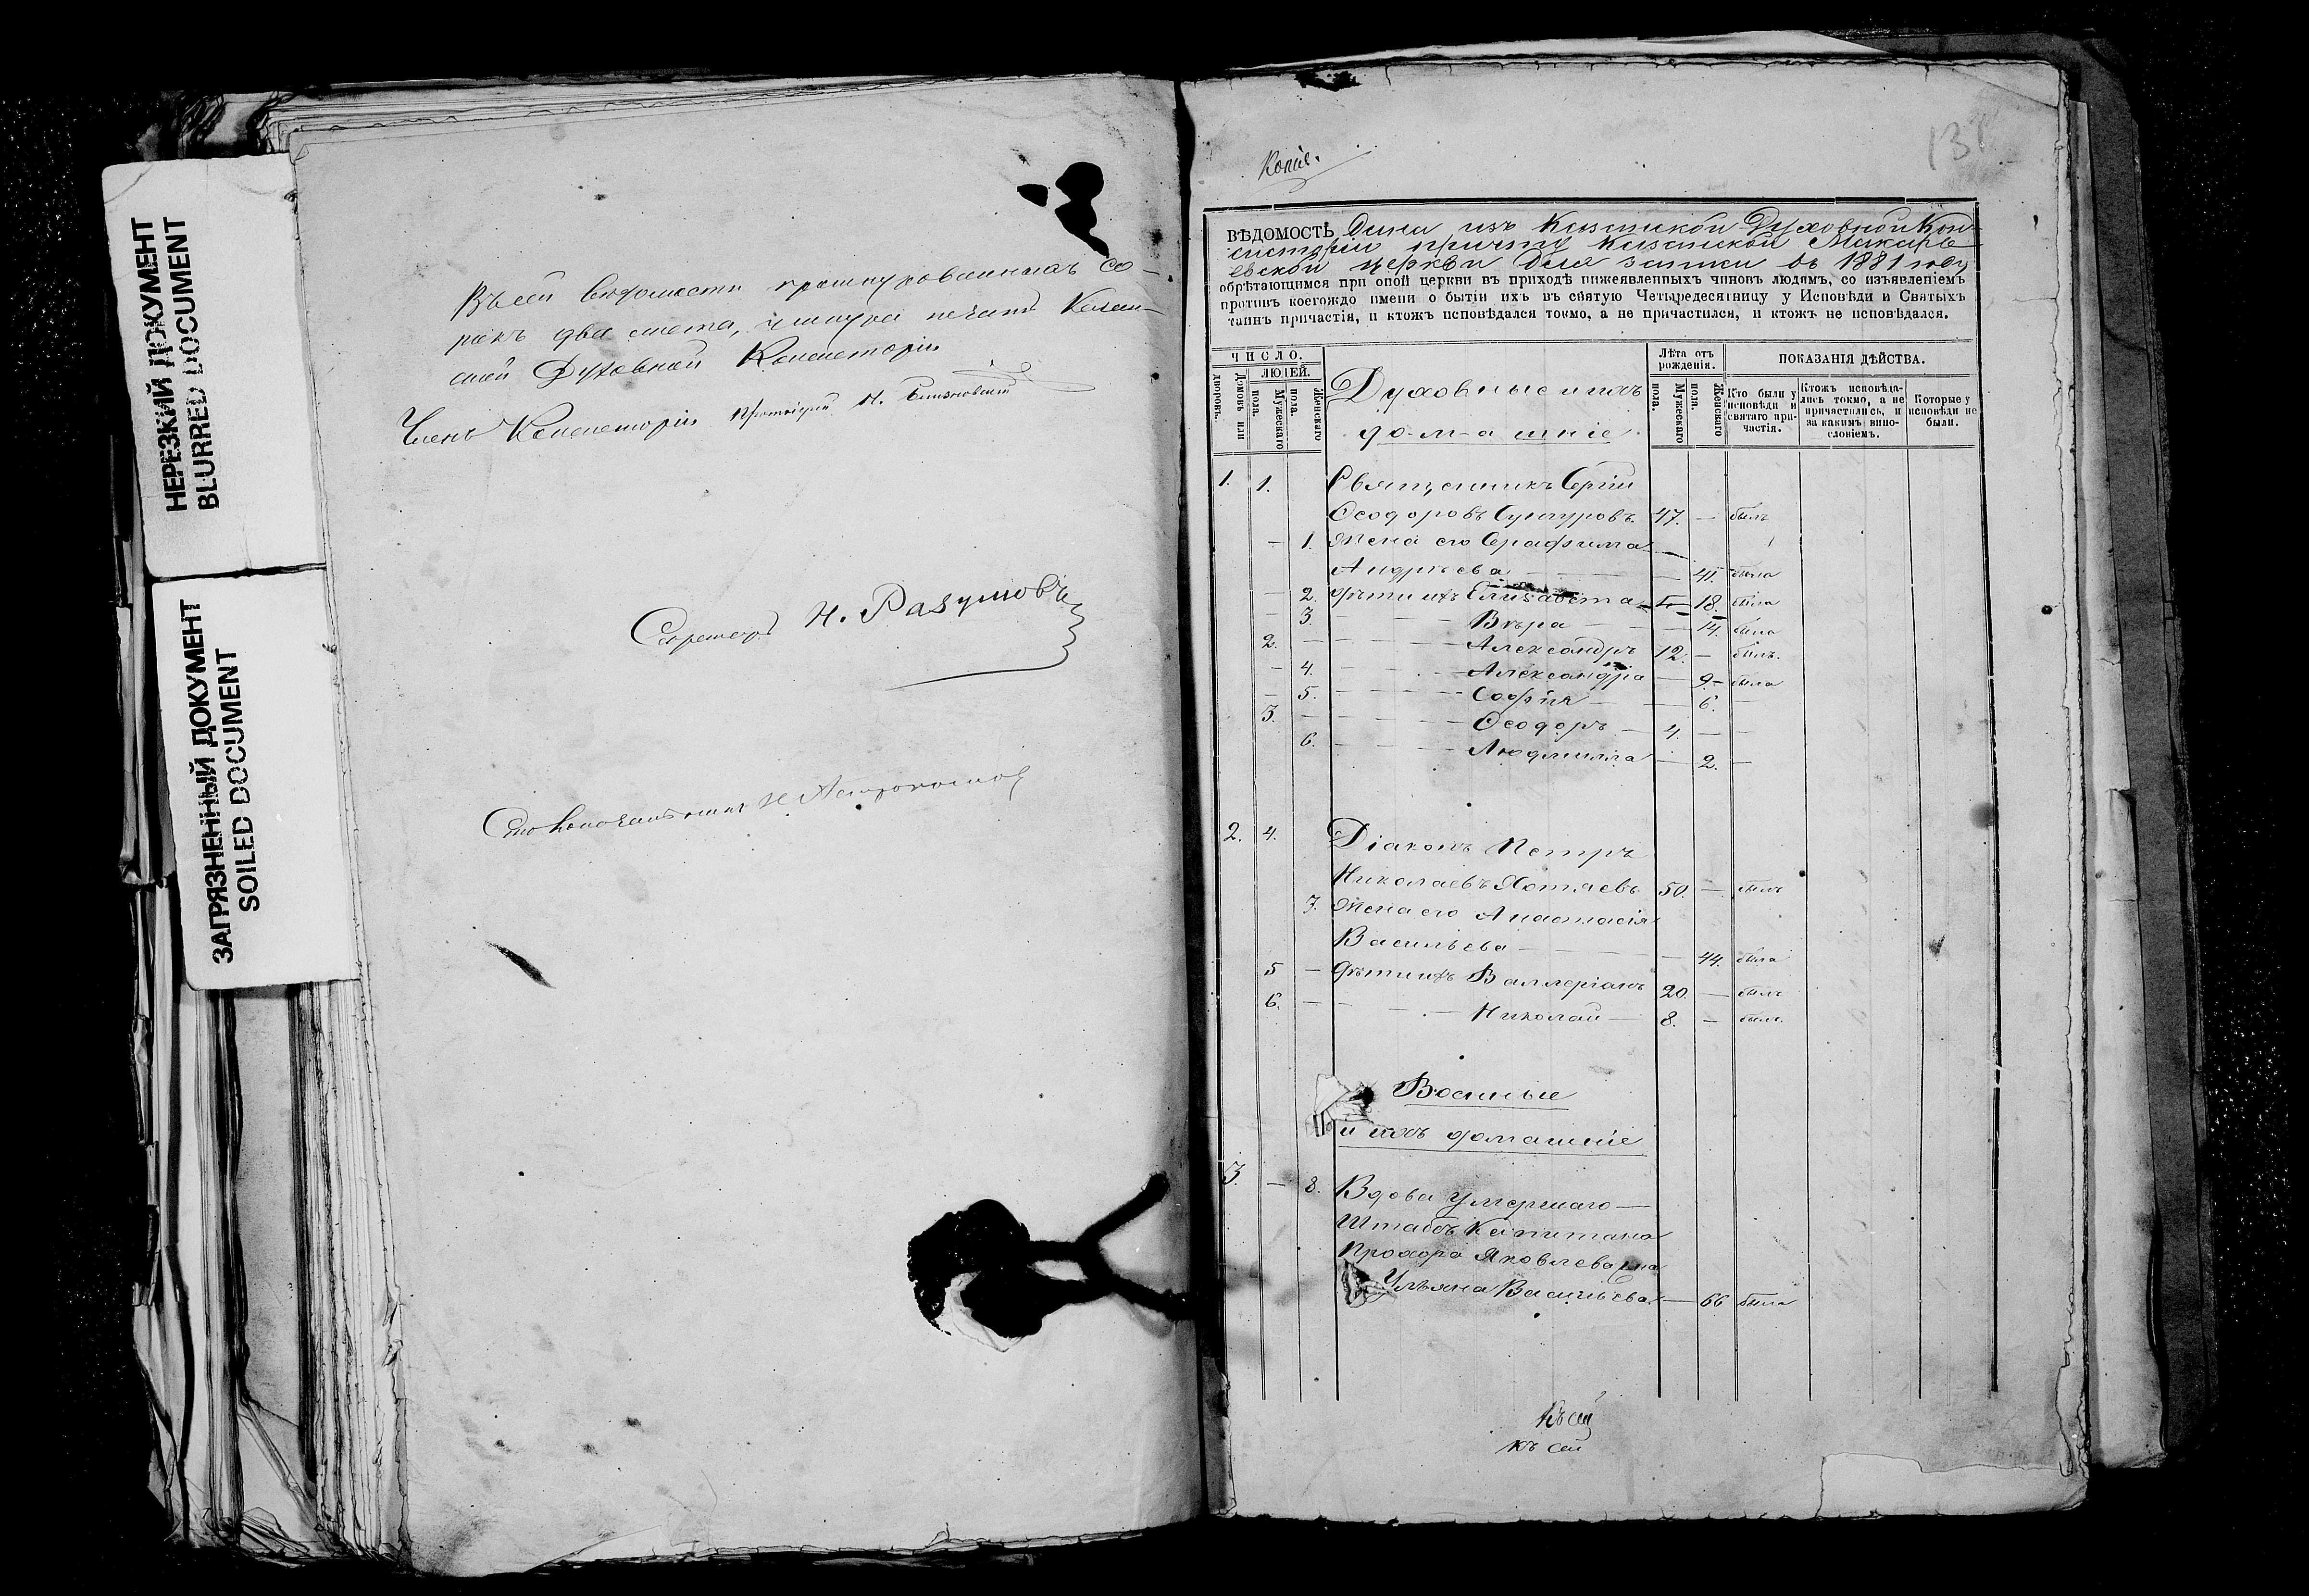 НЕРЕЗКИЙ ДОКУМЕНТ
BLURRED DOCUMENT
ЗАГРЯЗНЕННЫЙ ДОКУМЕНТ
SOILED DOCUMENT
Въ сей ведомости прошнурованныхъ со-
рокъ два листа, у шнура печать Казан-
ской Духовной Консисторіи
Членъ Консисторіи Протоіерей
Секретарь Н. Разумовъ
Столоначальникъ Н
Копія.
138
ВѢДОМОСТЬ Дана изъ Казанской Духовной Кон-
систоріи причту Казанской Макарь-
евской церкви для записи въ 1881 году
обрѣтающимся при оной церкви въ приходѣ нижеявленныхъ чиновъ людямъ, со изъявленіемъ
противъ коегождо имени о бытіи ихъ въ святую Четыредесятницу у Исповѣди и Святыхъ
таинъ причастія, и ктожъ исповѣдался токмо, а не причастился, и ктожъ не исповѣдался.
ЧИСЛО.
Домовъ или дворовъ.
ЛЮДЕЙ.
Мужескаго пола.
Женскаго пола.
Духовные и ихъ
домашніе
Лѣта отъ рожденія.
Мужескаго пола.
Женскаго пола.
ПОКАЗАНІЯ ДѢЙСТВА.
Кто были у исповѣди и святаго причастія.
Ктожъ исповѣдались токмо, а не причастились, и за какимъ винословіемъ.
Которые у исповѣди не были.
1. 1. Священникъ Сергій
Ѳеодоровъ 47. — былъ
— 1. Жена его Серафима
Андреева — 41. была
— 2. Дѣти ихъ Елизавета — 18. была
3. — Вѣра — 14. была
2. — Александръ 12. — былъ.
— 4. — Александра — 9. была
— 5. — Софія — 6. —
3. — Ѳеодоръ — 4. — —
6. — Людмилла — 2. —
2. 4. Діаконъ Петръ
Николаевъ Хотяевъ 50. — былъ
7. Жена его Анастасія
Васильева — 44. была
5 — Дѣти ихъ Валлеріанъ 20. — былъ
6. — Николай — 8. — былъ.
Военные
и ихъ домашніе
3. — 8. Вдова умершаго —
Штабсъ Капитана
Прохора Яковлева жена
Ульяна Васильева — 66 была
Къ сей
къ сей